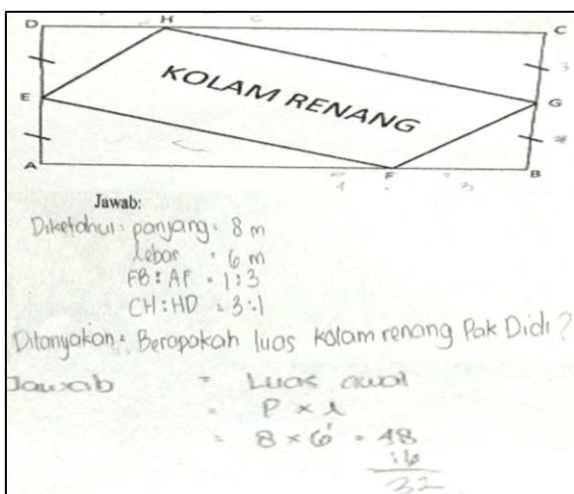 D H C
KOLAM RENANG
3
E G
A F B
Jawab:
Diketahui : panjang = 8 m
lebar = 6 m
FB : AF = 1 : 3
CH : HD = 3 : 1
Ditanyakan = Berapakah luas kolam renang Pak Didi ?
Jawab = Luas awal
= P × l
= 8 × 6 = 48
16
32